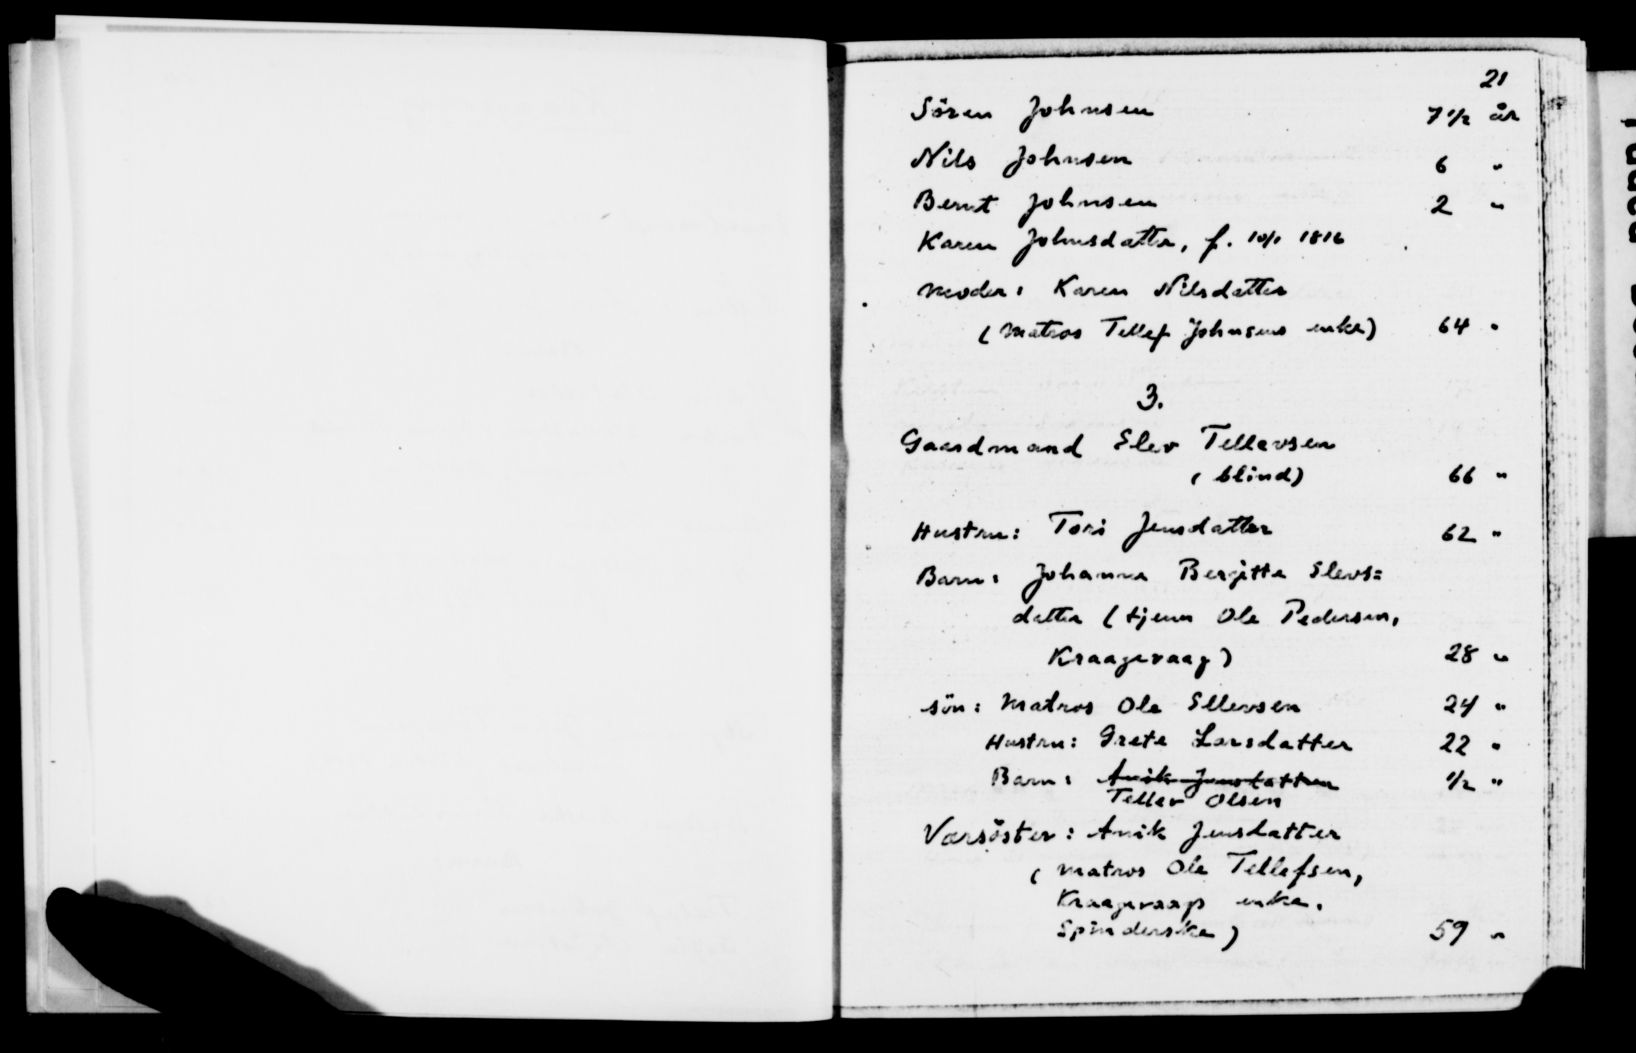 21
Sören Johnsen 7 1/2 år
Nils Johnsen 6 "
Bernt Johnsen 2 "
Karen Johnsdatter, f. 10/1 1816
Moder: Karen Nilsdatter
(Matros Tellef Johnsens enke) 64 "
3.
Gaardmand Elev Tellevsen
(blind) 66 "
Hustru: Tori Jensdatter 62 "
Barn: Johanne Bergitte Elevs=
datter (tjener Ole Pedersen,
Kraagevaag) 28 "
sön: Matros Ole Ellevsen 24 "
Hustru: Grete Larsdatter 22 "
Barn: Anik Jensdatter 1/2 "
Tellev Olsen
Værsöster: Anik Jensdatter
(Matros Ole Tellefsen,
Kraagevaags enke.
Spinderske) 59 "